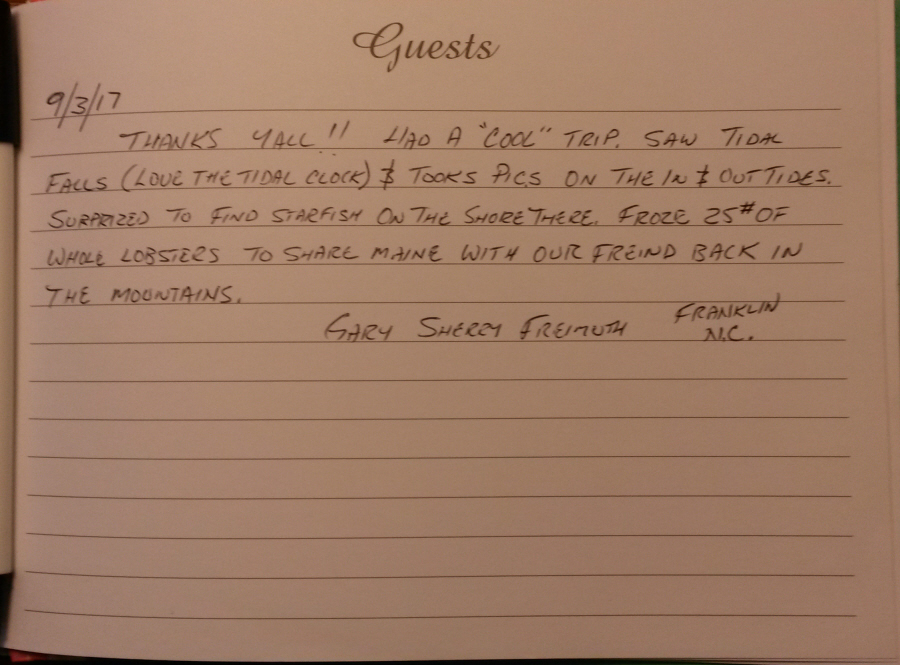 Guests
9/3/17
THANKS YALL!! HAD A "COOL" TRIP. SAW TIDAL
FALLS (LOVE THE TIDAL CLOCK) & TOOKS PICS ON THE IN & OUT TIDES.
SURPRIZED TO FIND STARFISH ON THE SHORE THERE. FROZE 25# OF
WHOLE LOBSTERS TO SHARE MAINE WITH OUR FREIND BACK IN
THE MOUNTAINS.
GARY SHERRY FREIMUTH FRANKLIN
N.C.